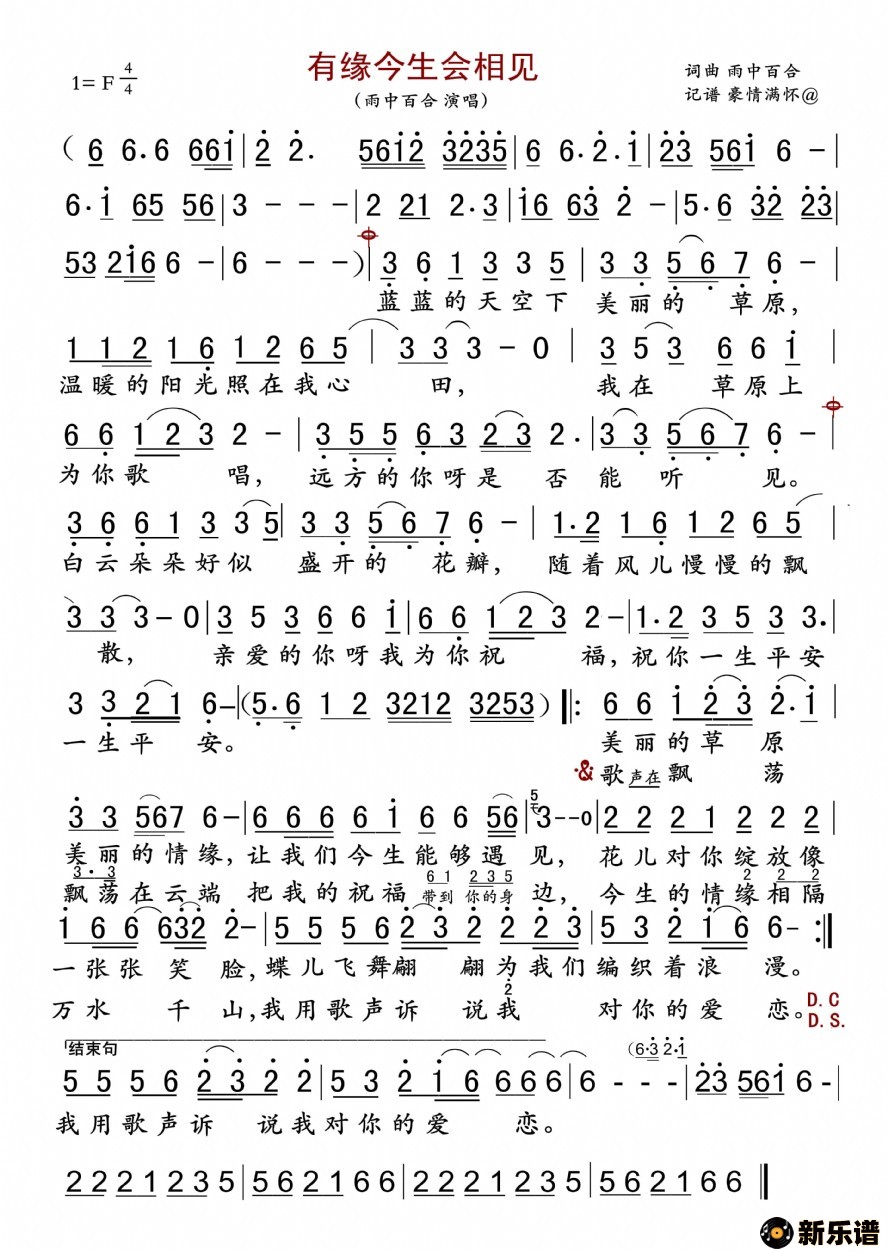 有缘今生会相见
1= F 4/4
（雨中百合 演唱）
词曲 雨中百合
记谱 豪情满怀@
( 6 6. 6 6 6 1 | 2 2. 5 6 1 2 3 2 3 5 | 6 6. 2. 1 | 2 3 5 6 1 6 - |
6. 1 65 56 | 3 - - - | 2 21 2. 3 | 16 63 2 - | 5. 6 32 23 |
53 216 6 - | 6 - - - ) | 3 6 1 3 3 5 | 3 3 5 6 7 6 - |
蓝蓝的天空下 美丽的 草原，
1 1 2 1 6 1 2 6 5 | 3 3 3 - 0 | 3 5 3 6 6 1 |
温暖的阳光照在我心 田， 我在 草原上
6 6 1 2 3 2 - | 3 5 5 6 3 2 3 2. | 3 3 5 6 7 6 - |
为你歌 唱， 远方的你呀是 否能听 见。
3 6 6 1 3 3 5 | 3 3 5 6 7 6 - | 1. 2 1 6 1 2 6 5 |
白云朵朵好似 盛开的 花瓣， 随着风儿慢慢的飘
3 3 3 - 0 | 3 5 3 6 6 1 | 6 6 1 2 3 2 - | 1. 2 3 5 3 3. |
散， 亲爱的你呀我为你祝 福，祝你一生平安
3 3 2 1 6 - | (5. 6 1 2 3212 3253) ‖: 6 6 1 2 3 2. 1 |
一生平 安。 美丽的草 原
& 歌声在飘 荡
3 3 5 6 7 6 - | 6 6 6 6 1 6 6 5 6 | 5 3 - - 0 | 2 2 2 1 2 2 2 |
美丽的情缘，让我们今生能够遇 见， 花儿对你绽放像
3. 3 6 1 2 3 5 2 2 2
飘荡在云端 把我的祝福 带到 你的身 边， 今生的情缘相隔
1 6 6 6 3 2 2 - | 5 5 5 6 2 3 2 2 2 3 | 5 3 2 1 6 6 - :‖
一张张 笑 脸，蝶儿飞舞翩 翩为我们编织着浪 漫。
2
万水 千山，我用歌声诉 说我 对你的爱 恋。 D. C
D. S.
结束句
(6. 3 2. 1
5 5 5 6 2 3 2 2 | 5 3 2 1 6 6 6 6 | 6 - - - | 2 3 5 6 1 6 - |
我用歌声诉 说我对你的爱 恋。
2 2 2 1 2 3 5 | 5 6 2 1 6 6 | 2 2 2 1 2 3 5 | 5 6 2 1 6 6 ‖
新乐谱